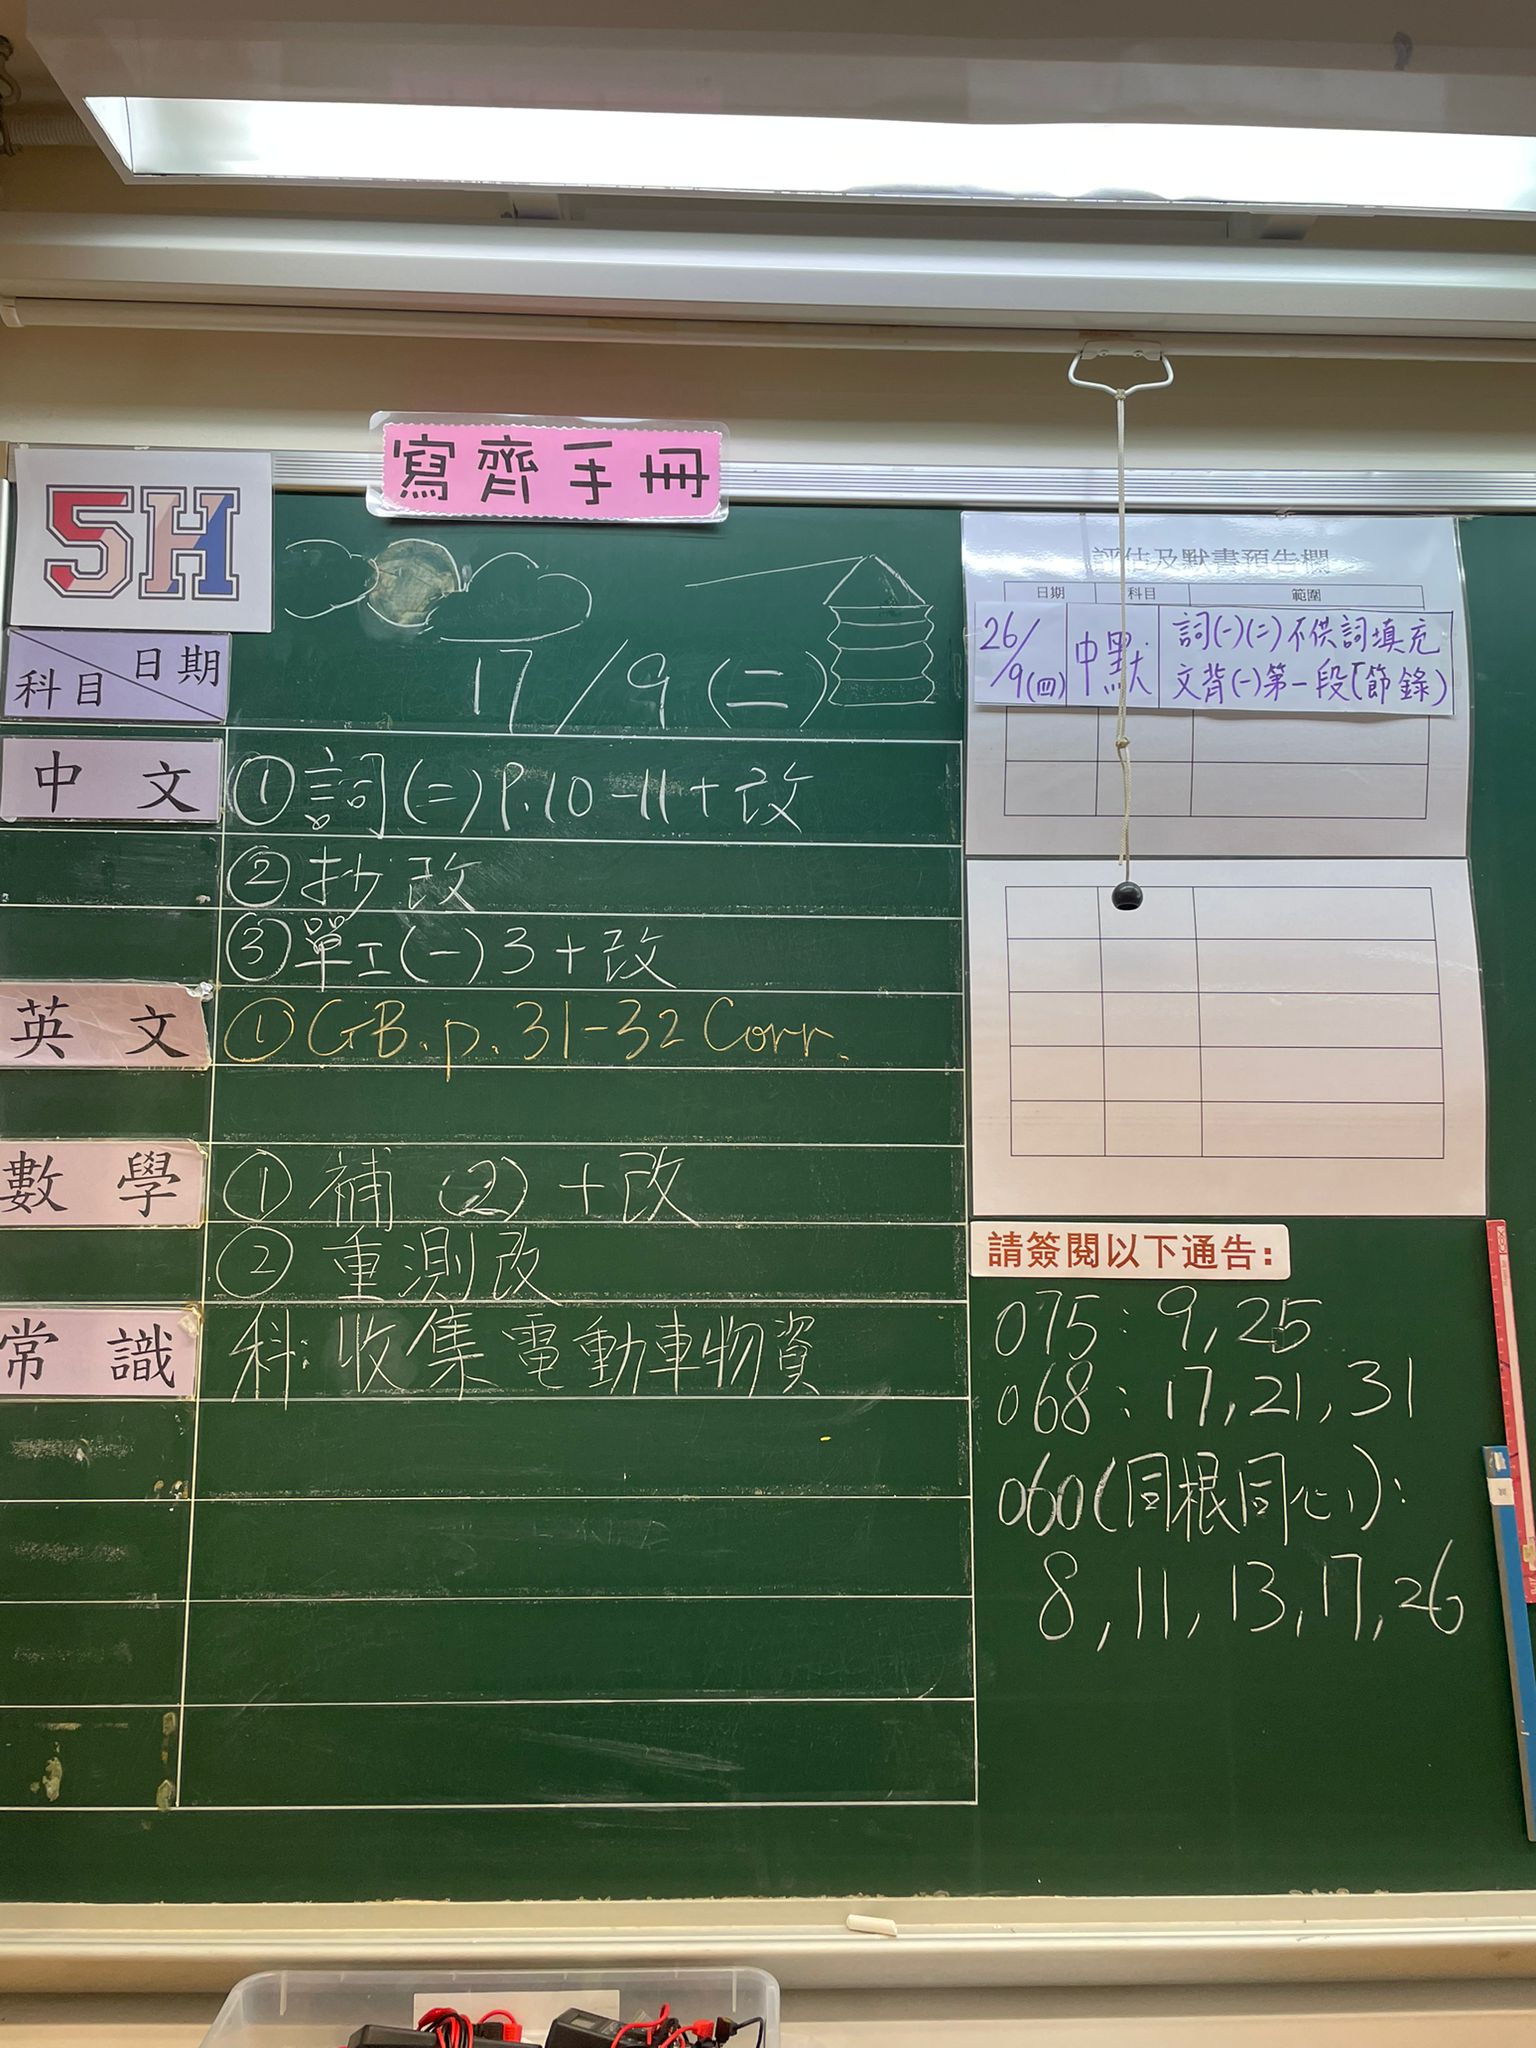 寫齊手冊
5H
日期
科目
17/9(二)
中文
①詞(二)P.10-11+改
②抄改
③單工(一)3+改
英文
①GB.p.31-32 Corr.
數學
①補(2)+改
②重測改
常識
科:收集電動車物資
評估及默書預告欄
日期 科目 範圍
26/9(四) 中默 詞(一)(二)不供詞填充
文背(一)第一段(節錄)
請簽閱以下通告:
075:9,25
068:17,21,31
060(同根同心):
8,11,13,17,26